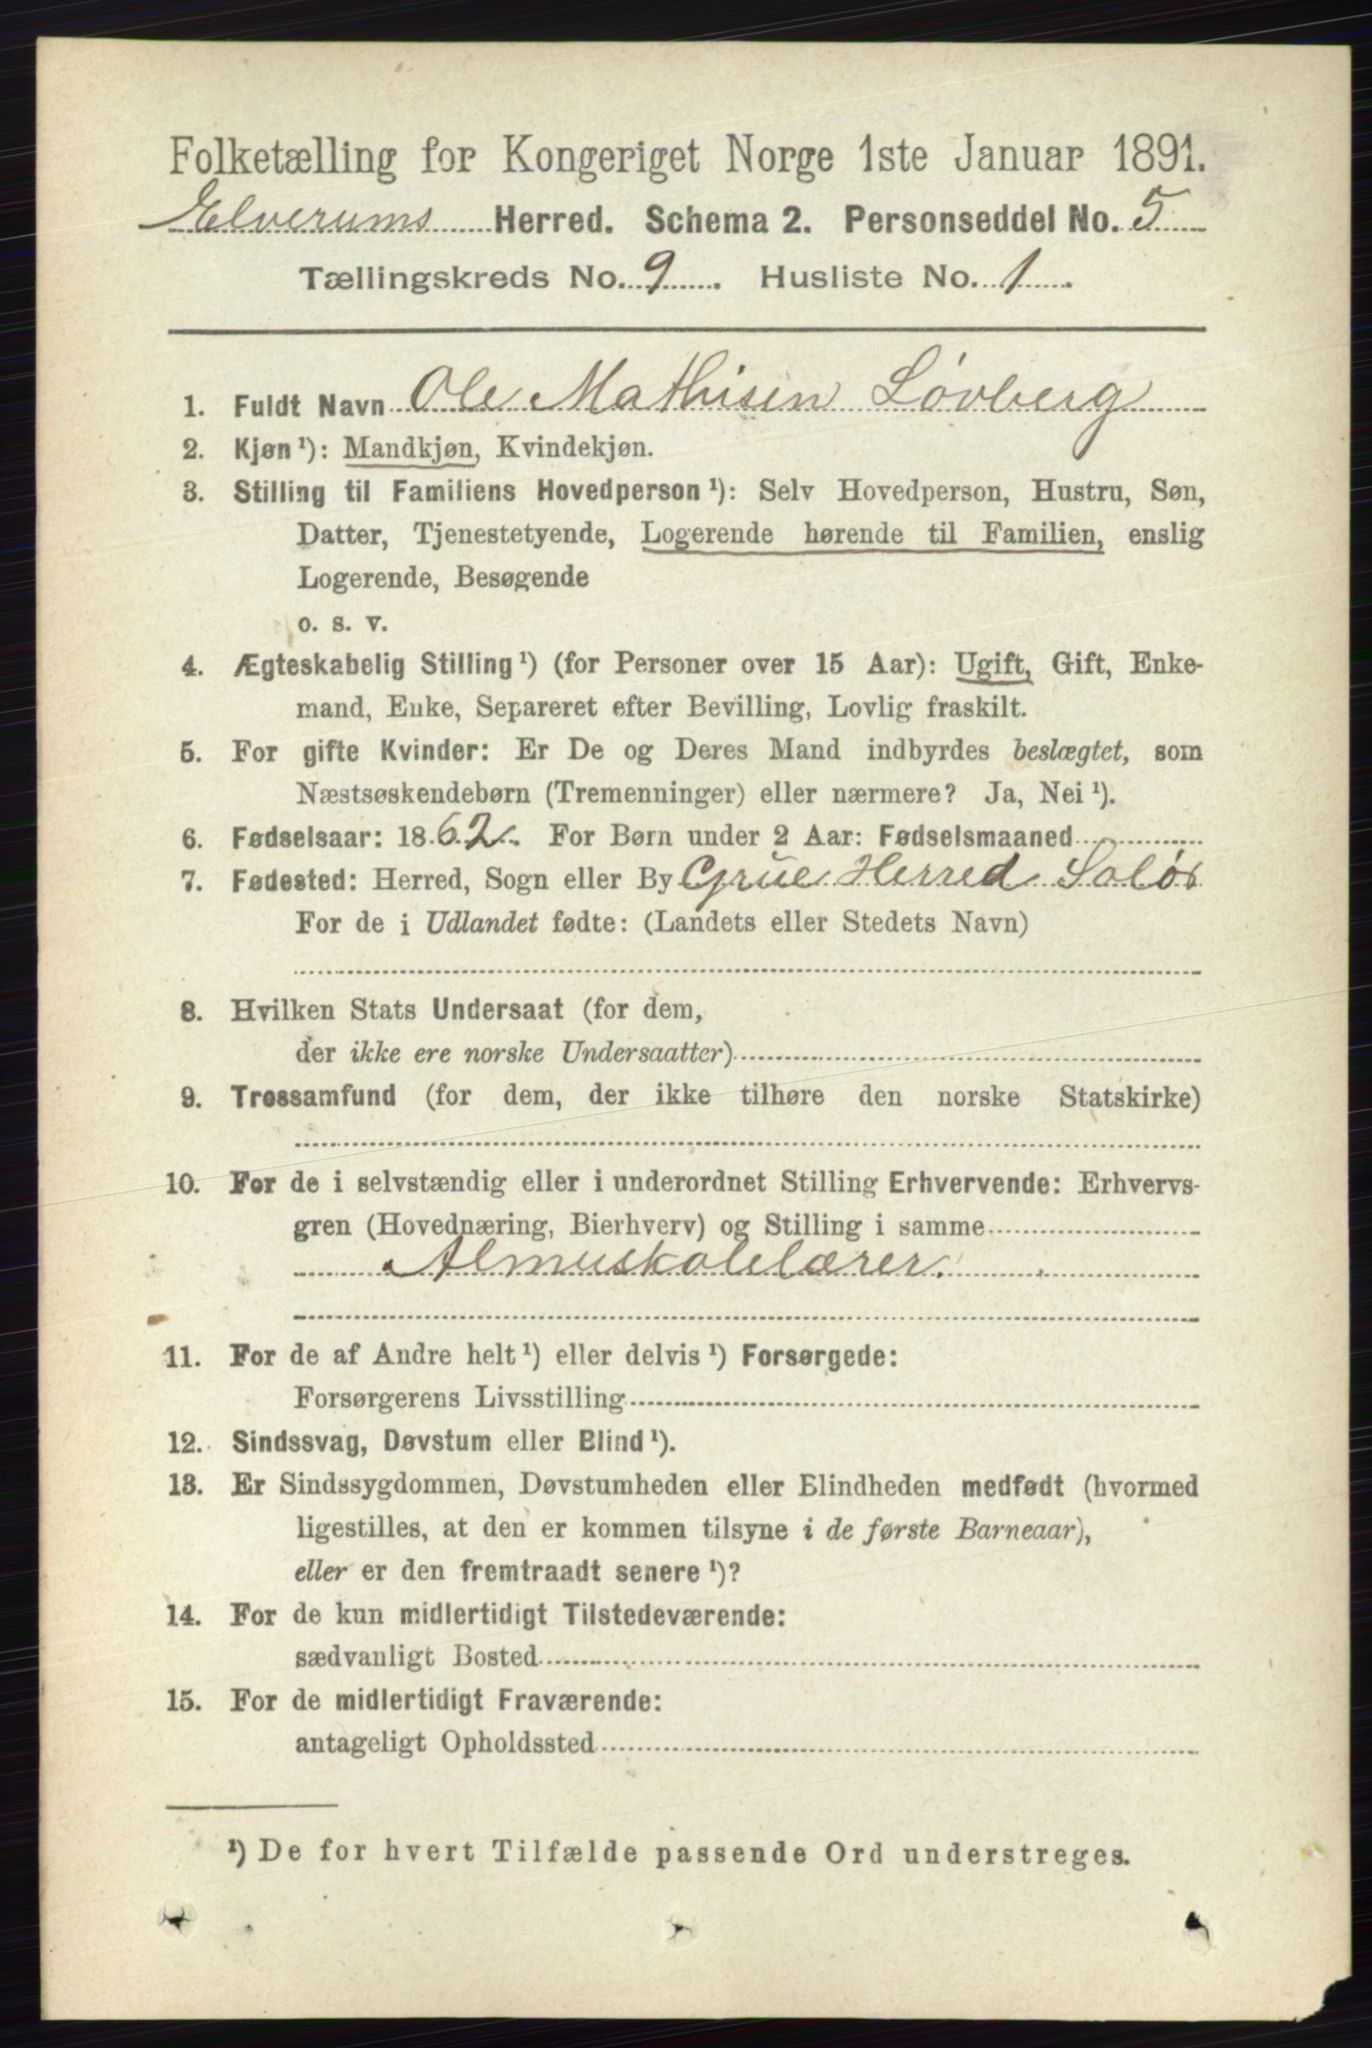 Folketælling for Kongeriget Norge 1ste Januar 1891.
Elverums Herred. Schema 2. Personseddel No. 5
Tællingskreds No. 9. Husliste No. 1.
1. Fuldt Navn Ole Mathisen Løvberg
2. Kjøn ¹): Mandkjøn, Kvindekjøn.
3. Stilling til Familiens Hovedperson ¹): Selv Hovedperson, Hustru, Søn,
Datter, Tjenestetyende, Logerende hørende til Familien, enslig
Logerende, Besøgende
o. s. v.
4. Ægteskabelig Stilling ¹) (for Personer over 15 Aar): Ugift, Gift, Enke-
mand, Enke, Separeret efter Bevilling, Lovlig fraskilt.
5. For gifte Kvinder: Er De og Deres Mand indbyrdes beslægtet, som
Næstsøskendebørn (Tremenninger) eller nærmere? Ja, Nei ¹).
6. Fødselsaar: 1862. For Børn under 2 Aar: Fødselsmaaned
7. Fødested: Herred, Sogn eller By Grue Herred Solør
For de i Udlandet fødte: (Landets eller Stedets Navn)
8. Hvilken Stats Undersaat (for dem,
der ikke ere norske Undersaatter)
9. Trossamfund (for dem, der ikke tilhøre den norske Statskirke)
10. For de i selvstændig eller i underordnet Stilling Erhvervende: Erhvervs-
gren (Hovednæring, Bierhverv) og Stilling i samme
Almuskolelærer.
11. For de af Andre helt ¹) eller delvis ¹) Forsørgede:
Forsørgerens Livsstilling
12. Sindssvag, Døvstum eller Blind ¹).
13. Er Sindssygdommen, Døvstumheden eller Blindheden medfødt (hvormed
ligestilles, at den er kommen tilsyne i de første Barneaar),
eller er den fremtraadt senere ¹)?
14. For de kun midlertidigt Tilstedeværende:
sædvanligt Bosted
15. For de midlertidigt Fraværende:
antageligt Opholdssted
¹) De for hvert Tilfælde passende Ord understreges.